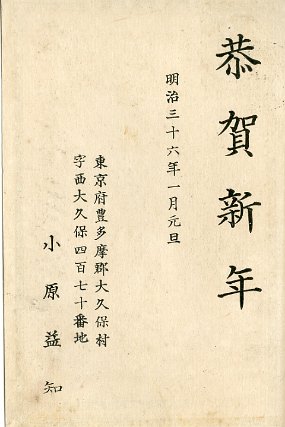 恭賀新年
明治三十六年一月元旦
東京府豊多摩郡大久保村
字西大久保四百七十番地
小原益知